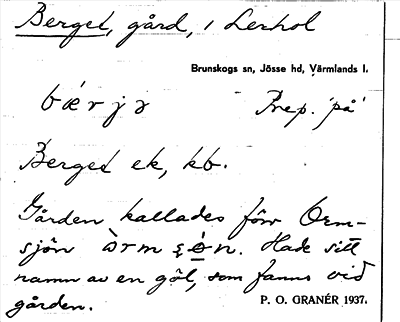 Berget, gård, i Lerhol
Brunskogs sn, Jösse hd, Värmlands l.
bærjə Prep. 'på'
Berget ek, kb.
Gården kallades förr Orm-
sjön òrmʂǿn. Hade sitt
namn av en göl, som fanns vid
gården. P. O. GRANÉR 1937.